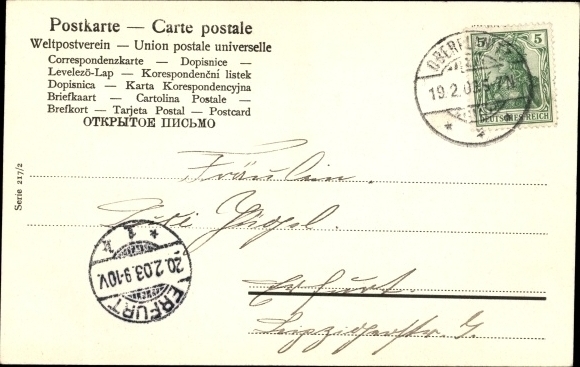 Postkarte — Carte postale
Weltpostverein — Union postale universelle
Correspondenzkarte — Dopisnice —
Levelező-Lap — Korespondenční listek
Dopisnica — Karta Korespondencyjna
Briefkaart — Cartolina Postale —
Brefkort — Tarjeta Postal — Postcard
ОТКРЫТОЕ ПИСЬМО
5 5
DEUTSCHES REICH
19.2.03
Serie 217/2
Fräulein
Vogel.
Erfurt.
Leipzigerstr.
20.2.03.9-10V.
ERFURT